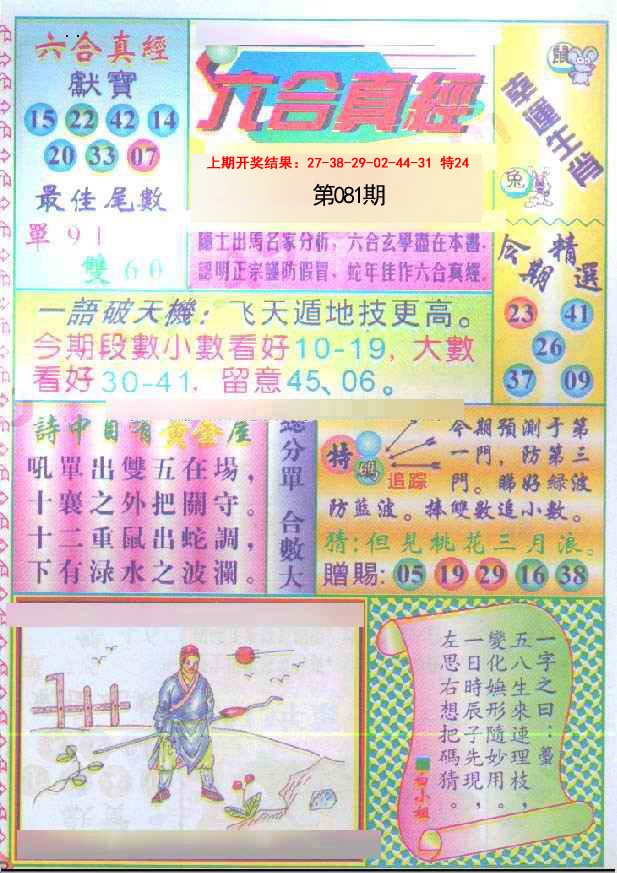 六合真經
獻寶
15 22 42 14
20 33 07
最佳尾數
單 91
雙 60
六合真經
上期开奖结果：27-38-29-02-44-31 特24
第081期
隱士出馬名家分析，六合玄學盡在本書，
認明正宗謹防假冒、蛇年佳作六合真經，
鼠
幸運生肖
兔
今期精選
23 41
26
37 09
一語破天機：飞天遁地技更高。
今期段數小數看好10-19，大數
看好30-41，留意45、06。
詩中自有黃金屋
吼單出雙五在場，
十襄之外把關守。
十二重鼠出蛇調，
下有渌水之波瀾。
總分單 合數大
特碼
追踪
今期預測于第
一門，防第三
門。睇好綠波
防藍波。捧雙數追小數。
猜：但見桃花三月浪。
贈賜：05 19 29 16 38
一字之曰：墨
五八生來連理枝，
變化嫵形隨妙用，
一日時辰子先現，
左思右想把碼猜。
白小姐